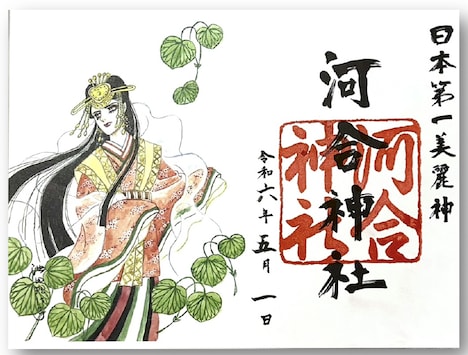 日本第一美麗神
河合神社
河合神社
令和六年五月一日